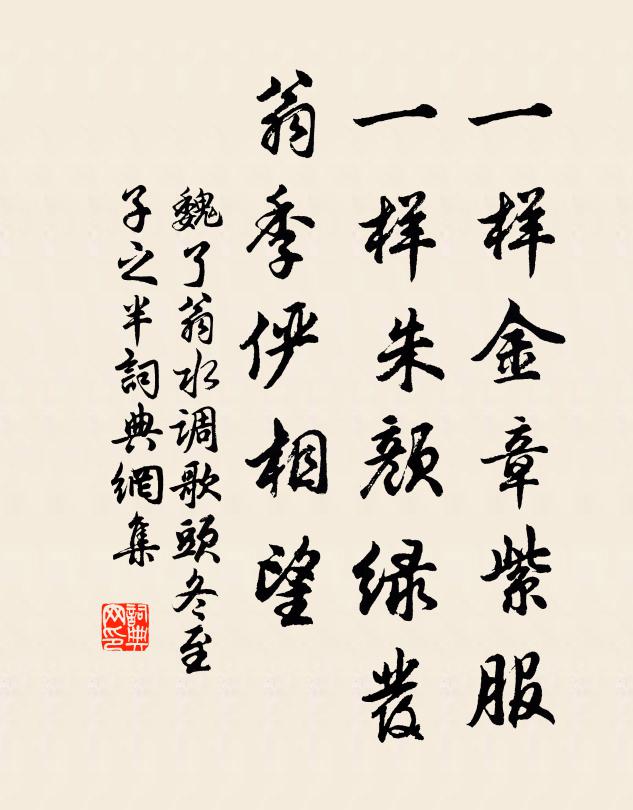 一样金章紫服
一样朱颜绿发
翁季俨相望
魏了翁水调歌頭冬至
子之半詞典網集
詞典网印